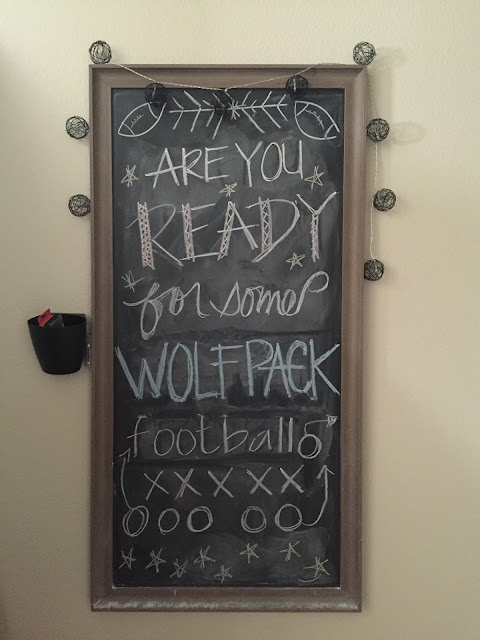 ARE YOU
READY
for some
WOLFPACK
football
X X X X X
O O O O O